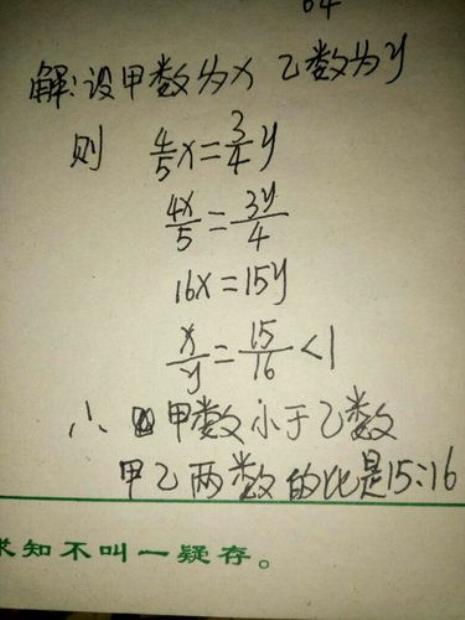 64
解:设甲数为x 乙数为y
则 4/5x=3/4y
4x/5=3y/4
16x=15y
x/y=15/16<1
∴ 甲数小于乙数
甲乙两数的比是15:16
求知不叫一疑存。